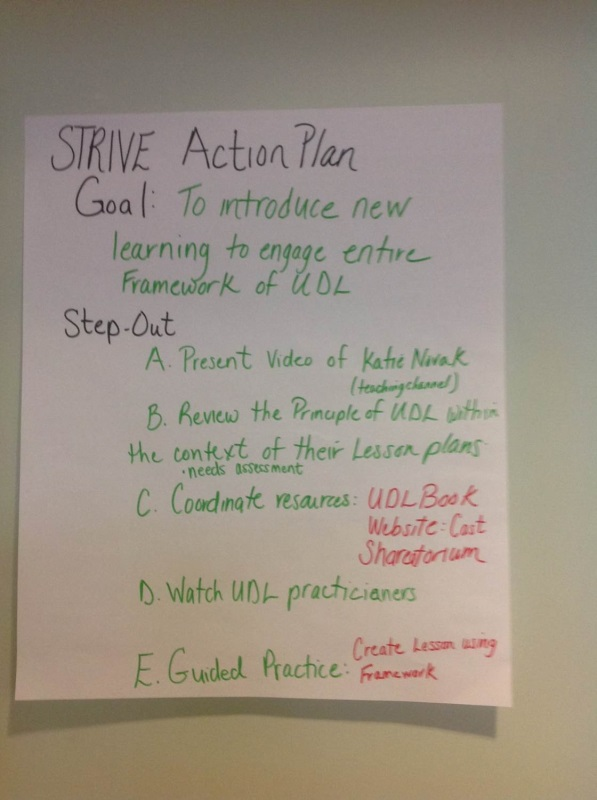 STRIVE Action Plan
Goal: To introduce new
learning to engage entire
Framework of UDL
Step-Out
A. Present Video of Katie Novak
(teachingchannel)
B. Review the Principle of UDL within
the context of their Lesson plans
•needs assessment
C. Coordinate resources: UDL Book
Website: Cast
Shareatorium
D. Watch UDL practicianers
E. Guided Practice: Create Lesson using
Framework